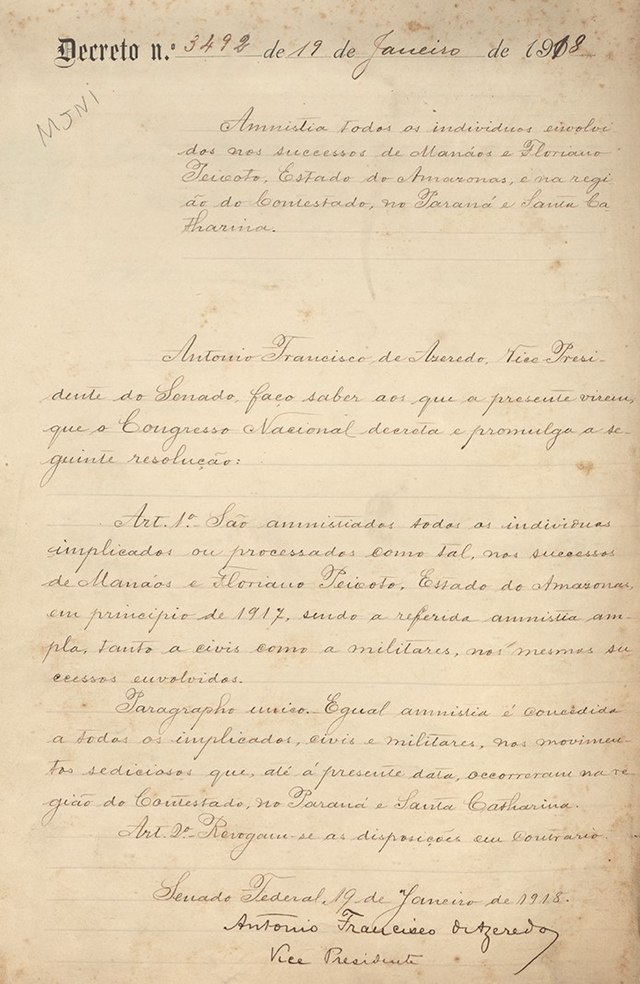 Decreto n.º 3492 de 19 de Janeiro de 1918
MJNI
Amnistia todos os individuos envolvi
dos nos successos de Manáos e Floriano
Peixoto, Estado do Amazonas, e na regi
ão do Contestado, no Paraná e Santa Ca
tharina.
Antonio Francisco de Azeredo, Vice-Presi-
dente do Senado, faço saber aos que a presente virem,
que o Congresso Nacional decreta e promulga a se-
guinte resolução:
Art. 1º São amnistiados todos os individuos
implicados ou processados como tal, nos successos
de Manáos e Floriano Peixoto, Estado do Amazonas,
em principio de 1917, sendo a referida amnistia am-
pla, tanto a civis como a militares, nos mesmos su
ccessos envolvidos.
Paragrapho unico. Egual amnistia é concedida
a todos os implicados, civis e militares, nos movimen-
tos sediciosos que, até á presente data, occorreram na re-
gião do Contestado, no Paraná e Santa Catharina.
Art. 2º Revogam-se as disposições em contrario.
Senado Federal, 19 de Janeiro de 1918.
Antonio Francisco de Azeredo
Vice Presidente